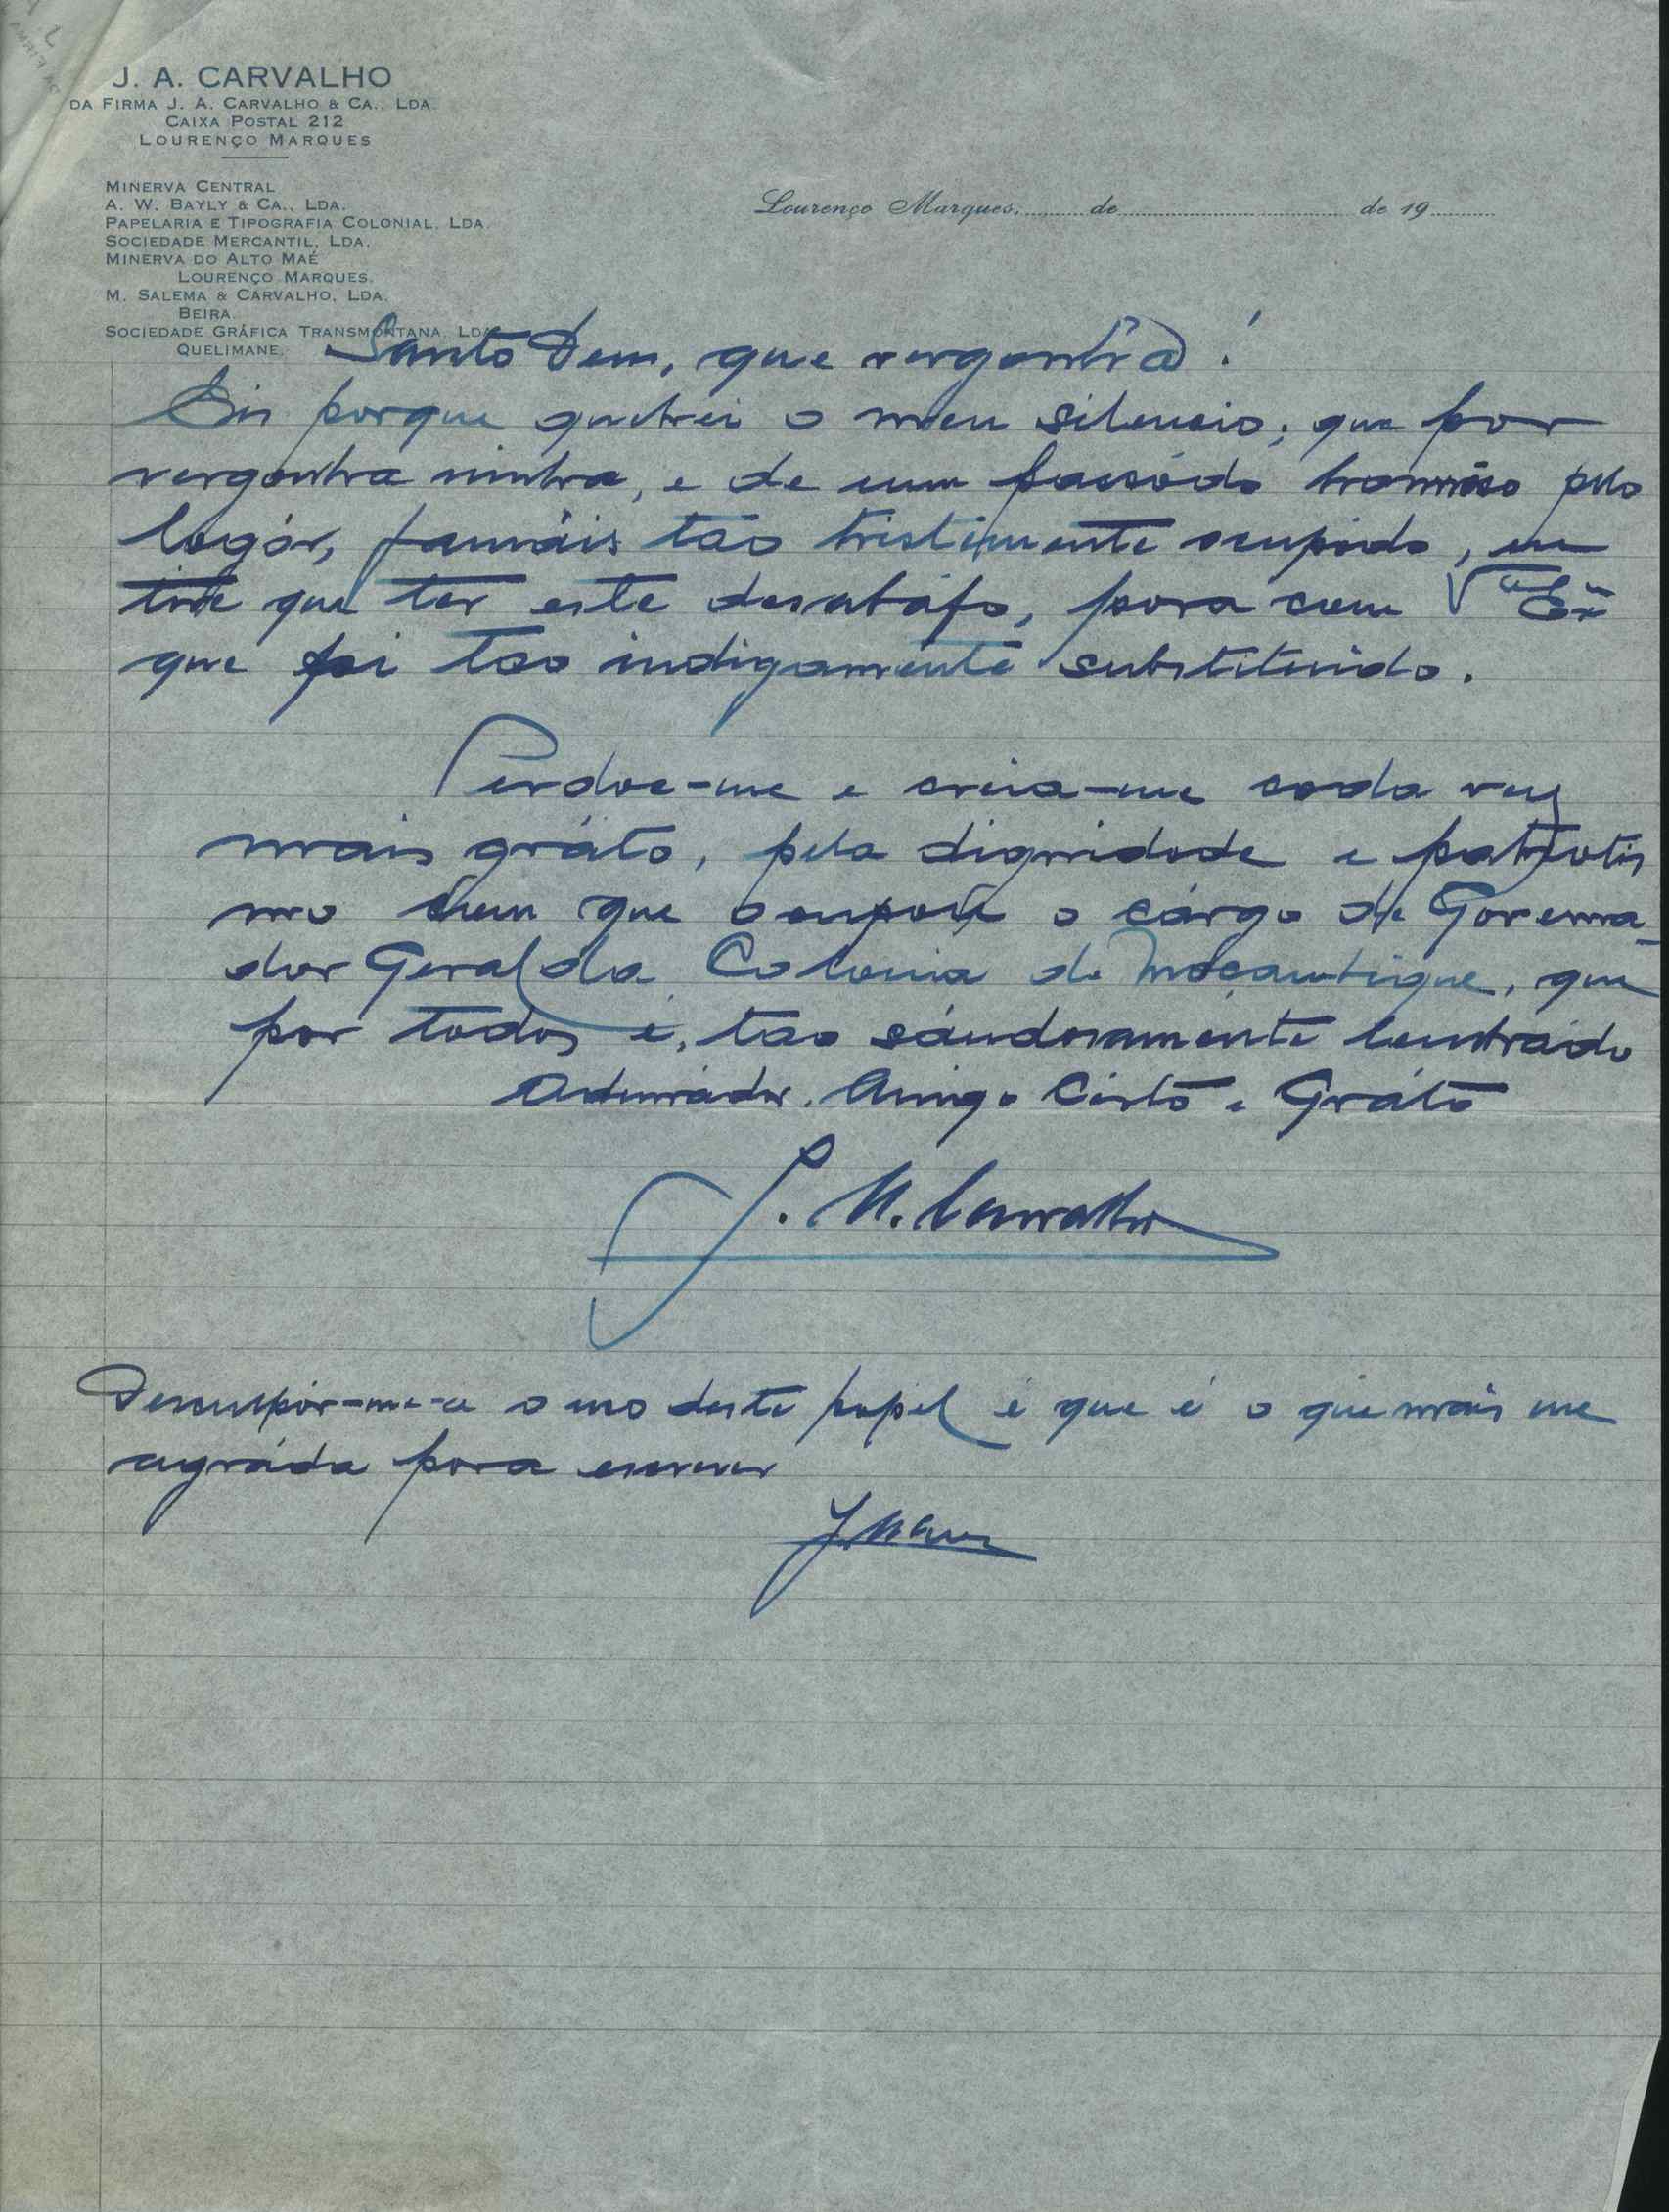 J. A. CARVALHO
DA FIRMA J. A. CARVALHO & CA., LDA.
CAIXA POSTAL 212
LOURENÇO MARQUES
MINERVA CENTRAL
A. W. BAYLY & CA., LDA.
PAPELARIA E TIPOGRAFIA COLONIAL, LDA.
SOCIEDADE MERCANTIL, LDA.
MINERVA DO ALTO MAÉ
LOURENÇO MARQUES.
M. SALEMA & CARVALHO, LDA.
BEIRA.
SOCIEDADE GRÁFICA TRANSMONTANA, LDA
QUELIMANE.
Lourenço Marques, de de 19
Santo Deus, que vergonha!
Eis porque quebrei o meu silencio, que por
vergonha minha, e de um passádo pelo
logár, jamáis tão tristemente ocupádo, eu
tive que ter este desabáfo, para com V.ª Ex.ª
que foi tão indignamente substituido.
Perdoe-me e creia-me cada vez
mais gráto, pela dignidade e patriotis
mo com que o cárgo de Governa-
dor Geral da Colonia de Moçambique, que
por todos é, tão sáudosamente lembrádo
Admirádor, Amigo Cérto e Gráto
J. A. Carvalho
o uso deste papel é que é o que mais me
agráda para escrever